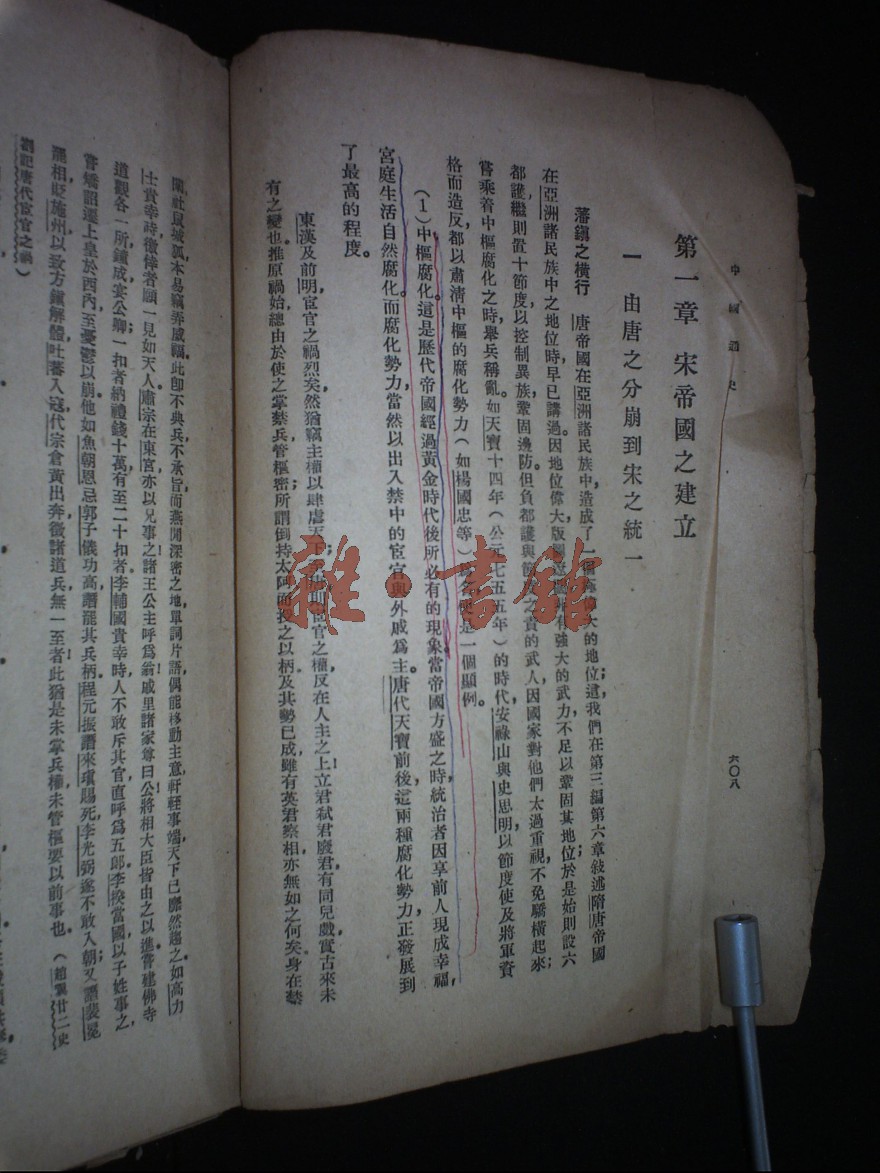 中國通史
六〇八
第一章 宋帝國之建立
一 由唐之分崩到宋之統一
藩鎭之橫行 唐帝國在亞洲諸民族中,造成了一個 大的地位;這我們在第三編第六章敍述隋唐帝國
在亞洲諸民族中之地位時,早已講過。因地位偉大,版圖 有強大的武力,不足以鞏固其地位;於是始則設六
都護,繼則置十節度,以控制異族,鞏固邊防。但負都護與節 之責的武人,因國家對他們太過重視,不免驕橫起來;
嘗乘着中樞腐化之時,舉兵稱亂。如天寶十四年(公元七五五年)的時代,安祿山與史思明以節度使及將軍資
格而造反,都以肅清中樞的腐化勢力(如楊國忠等) 是一個顯例。
(1)中樞腐化 這是歷代帝國經過黃金時代後所必有的現象。當帝國方盛之時,統治者因享前人現成幸福,
宮庭生活自然腐化;而腐化勢力,當然以出入禁中的宦官與外戚爲主。唐代天寶前後,這兩種腐化勢力,正發展到
了最高的程度。
東漢及前明宦官之禍烈矣,然猶竊主權以肆虐天下; 則宦官之權反在人主之上,立君弒君廢君,有同兒戲,實古來未
有之變也。推原禍始,總由於使之掌禁兵,管樞密;所謂倒持太阿而授之以柄,及其勢已成,雖有英君察相,亦無如之何矣。身在禁
闈,社鼠城狐,本易竊弄威福,此卽不典兵,不承旨,而燕閒深密之地,單詞片語,偶能移動主意,軒輊事端,天下已靡然趨之。如高力
士貴幸時,徼倖者願一見如天人,肅宗在東宮,亦以兄事之,諸王公主呼爲翁,戚里諸家尊曰公,將相大臣,皆由之以進。嘗建佛寺
道觀各一所,鐘成,宴公卿,一扣者納禮錢十萬,有至二十扣者。李輔國貴幸時,人不敢斥其官,直呼爲五郎;李揆當國,以子姓事之。
嘗矯詔遷上皇於西內,至憂鬱以崩。他如魚朝恩忌郭子儀功高,譖罷其兵柄;程元振譖來瑱賜死,李光弼遂不敢入朝;又譖裴冕
罷相,貶施州,以致方鎭解體,吐蕃入寇,代宗倉黃出奔,徵諸道兵,無一至者。此猶是未掌兵權未管樞要以前事也。(趙翼廿二史
劄記唐代宦官之禍)
雜·書館